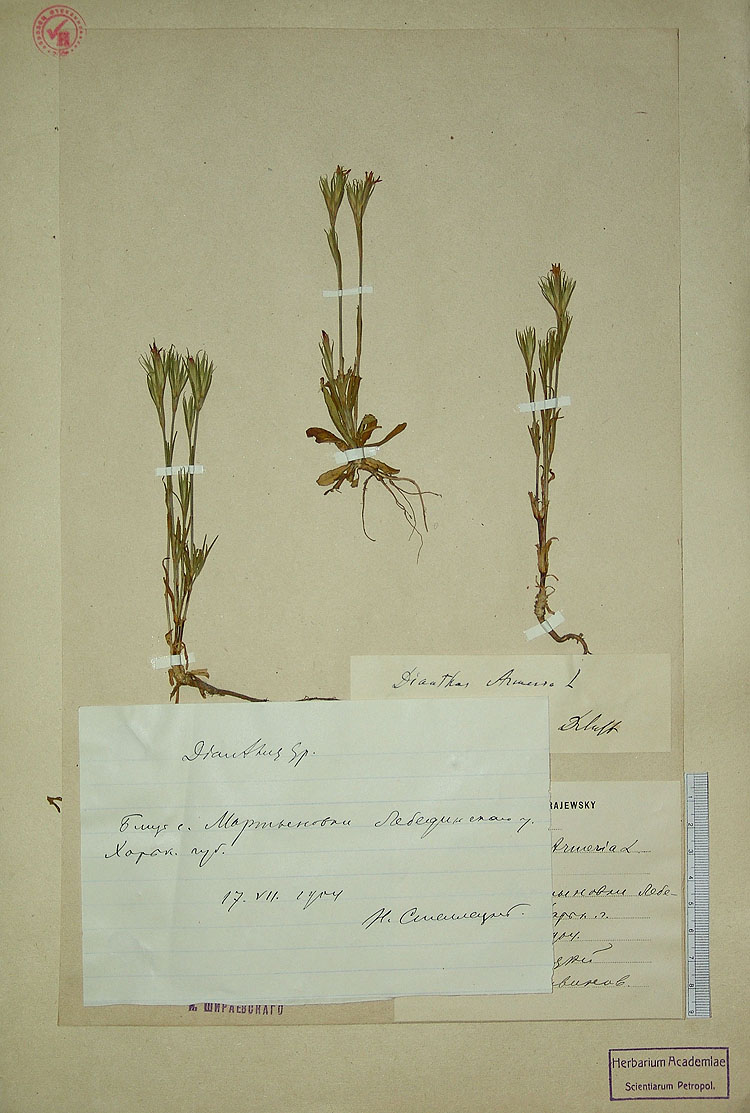 Dianthus Armeria L
Dianthus Sp.
Близ с. Мартыновки Лебединского у.
Харьк. губ.
17. VII. 1904
RAJEWSKY
Armeria L
ыновки Лебе-
904.
винов.
ШИРАЕВСКАГО
1
2
3
4
5
6
7
8
9
Herbarium Academiae
Scientiarum Petropol.